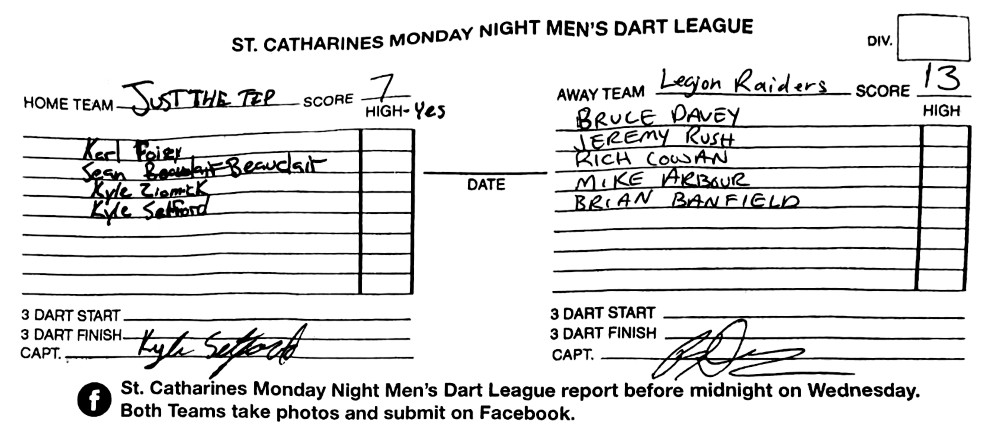 ST. CATHARINES MONDAY NIGHT MEN'S DART LEAGUE
DIV.
HOME TEAM JUST THE TIP SCORE 7
HIGH- Yes
Karl Foisy
Sean Beauclair
Kyle
Kyle Setford
DATE
AWAY TEAM Legion Raiders SCORE 13
HIGH
BRUCE DAVEY
JEREMY RUSH
RICH COWAN
MIKE ARBOUR
BRIAN BANFIELD
3 DART START
3 DART FINISH
CAPT. Kyle Setford
3 DART START
3 DART FINISH
CAPT.
f St. Catharines Monday Night Men's Dart League report before midnight on Wednesday.
Both Teams take photos and submit on Facebook.